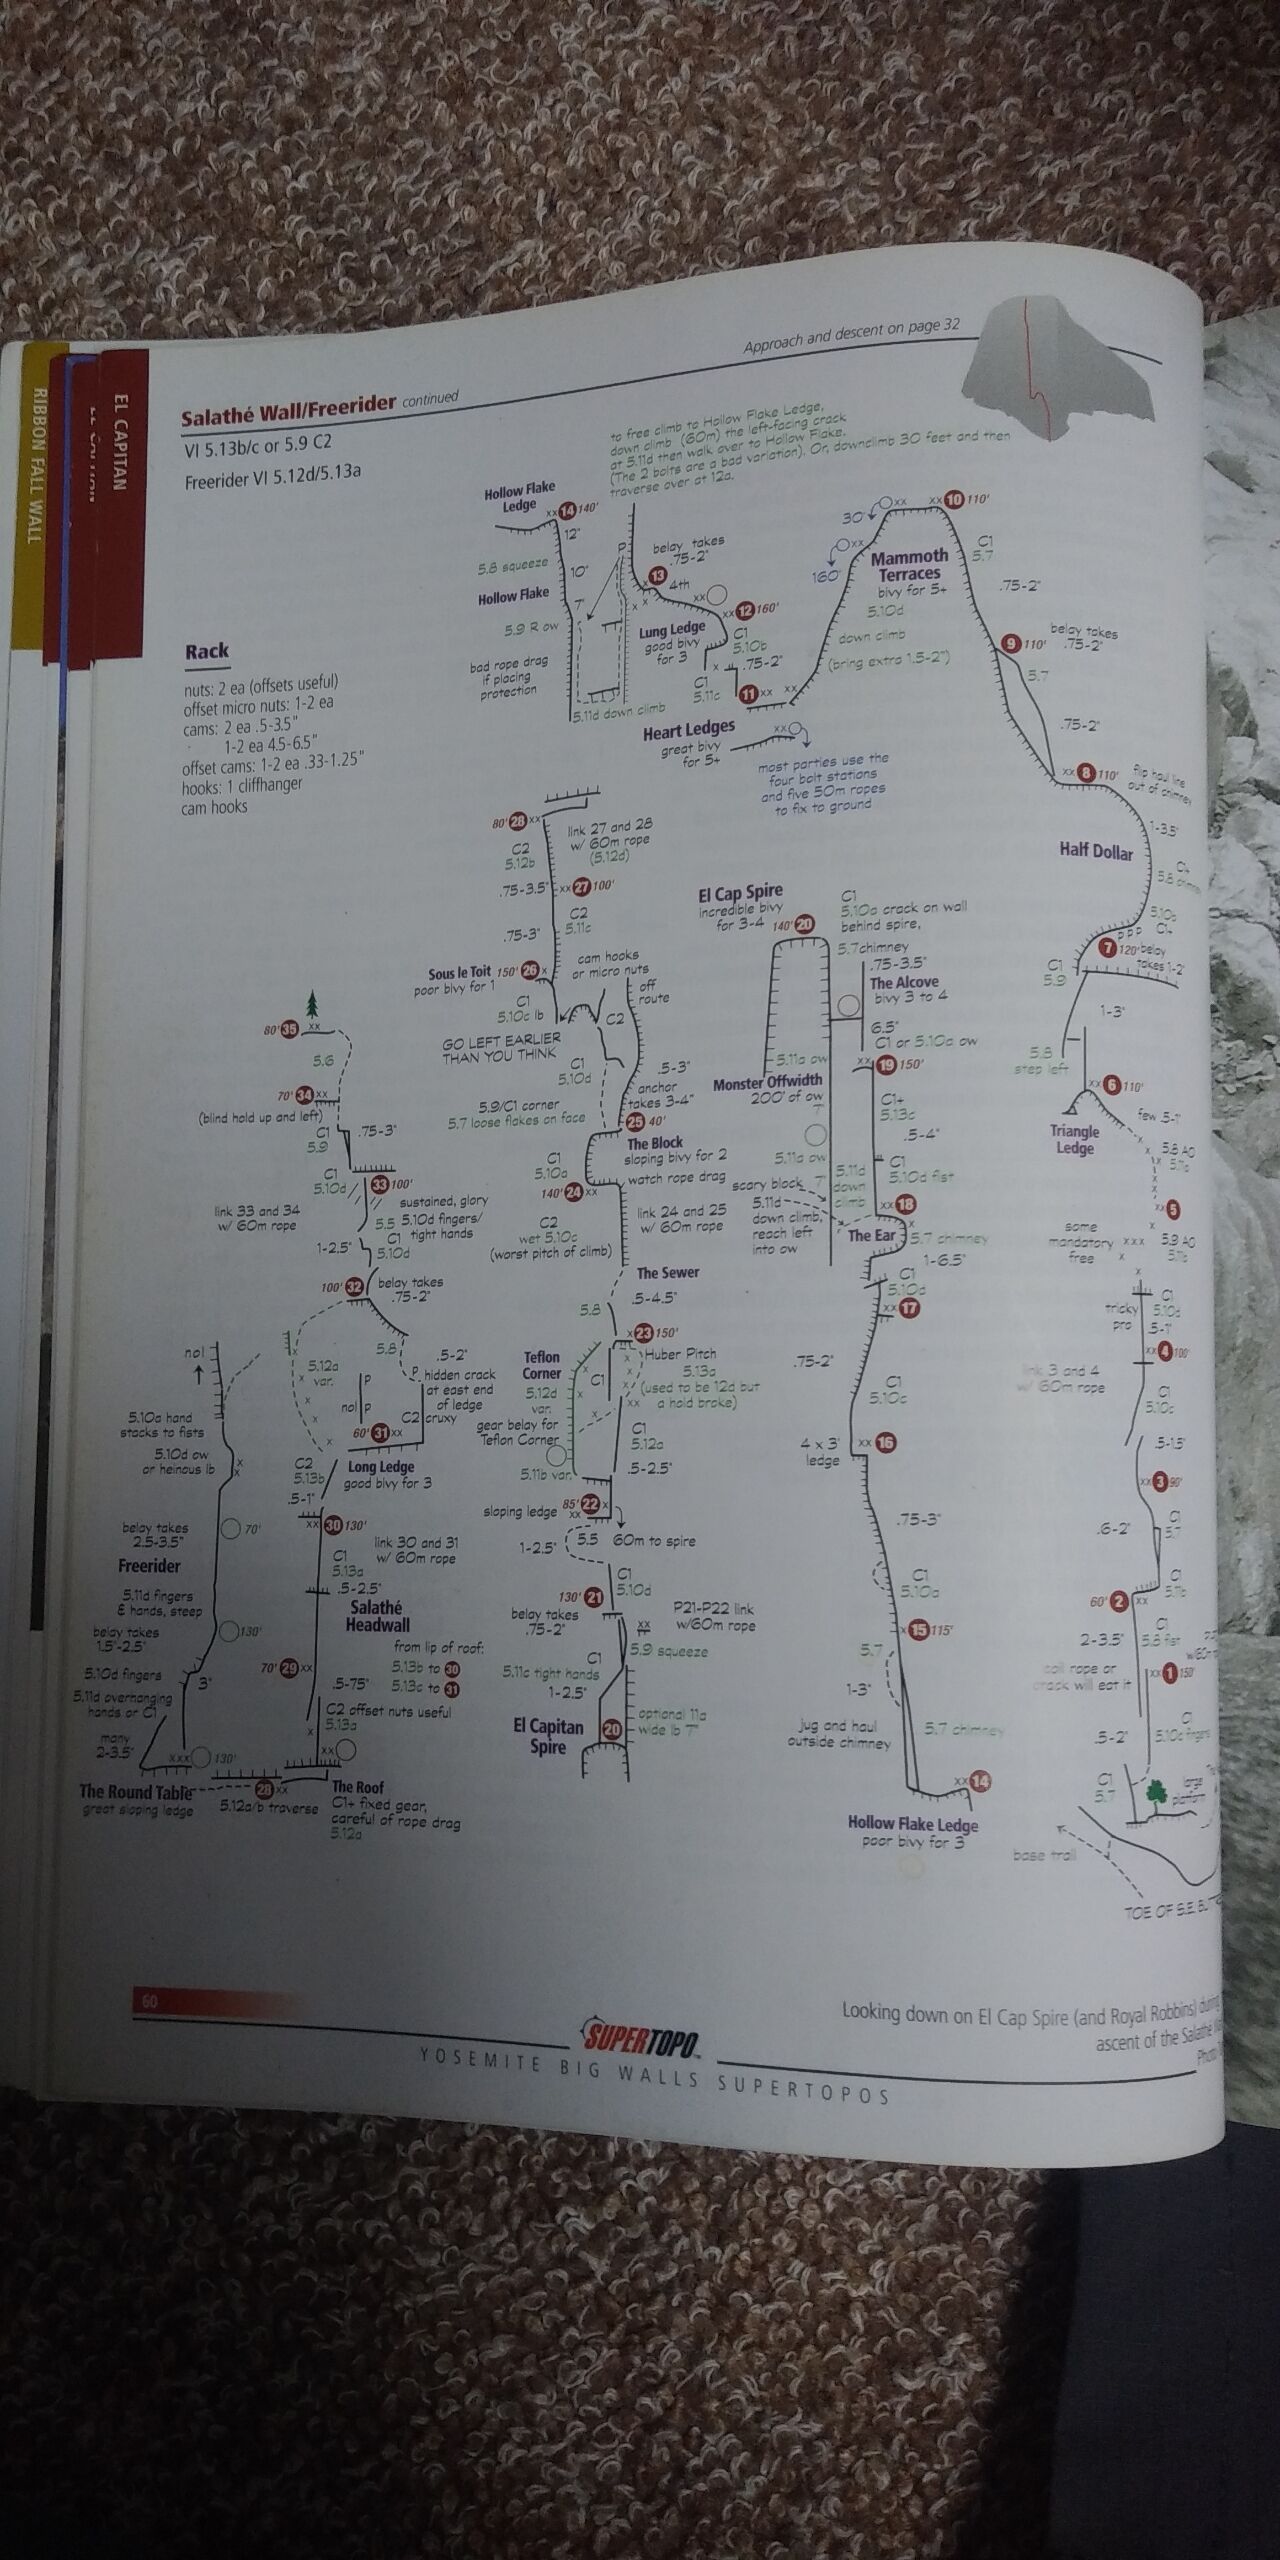 EL CAPITAN
RIBBON FALL WALL
Approach and descent on page 32
Salathé Wall/Freerider continued
VI 5.13b/c or 5.9 C2
Freerider VI 5.12d/5.13a
Rack
nuts: 2 ea (offsets useful)
offset micro nuts: 1-2 ea
cams: 2 ea .5-3.5"
1-2 ea 4.5-6.5"
offset cams: 1-2 ea .33-1.25"
hooks: 1 cliffhanger
cam hooks
to free climb to Hollow Flake Ledge,
down climb (60m) the left-facing crack
at 5.11d then walk over to Hollow Flake.
(The 2 bolts are a bad variation). Or, downclimb 30 feet and then
traverse over at 12a.
Hollow Flake
Ledge
xx 14 140'
12"
5.8 squeeze
10"
Hollow Flake
7"
5.9 R ow
bad rope drag
if placing
protection
5.11d down climb
P
belay takes
.75-2"
13
4th
xx
xx 12 160'
Lung Ledge
good bivy
for 3
C1
5.10b
x .75-2"
C1
5.11c
11 xx
xx
Heart Ledges
great bivy
for 5+
xx
most parties use the
four bolt stations
and five 50m ropes
to fix to ground
30'
xx
xx 10 110'
xx
160'
Mammoth
Terraces
bivy for 5+
5.10d
down climb
(bring extra 1.5-2")
C1
5.7
.75-2"
9 110'
belay takes
.75-2"
5.7
.75-2"
xx 8 110'
flip haul line
out of chimney
1-3.5"
Half Dollar
C1
5.8 chimney
5.10b
C1
P P P
7 120' belay
takes 1-2"
C1
5.9
1-3"
5.8
step left
xx 6 110'
few .5-1"
Triangle
Ledge
5.8 A0
xx 5
some
mandatory
free
xxx
5.9 A0
C1
5.10d
tricky
pro
.5-1"
xx 4 100'
link 3 and 4
w/ 60m rope
C1
5.10c
.5-1.5"
xx 3 90'
.6-2"
C1
5.7
C1
5.11b
60' 2 xx
2-3.5"
C1
5.8 fist
coil rope or
crack will eat it
xx 1 150'
.5-2"
C1
5.10c fingers
C1
5.7
large
platform
base trail
TOE OF S.E.
80' 28 xx
link 27 and 28
w/ 60m rope
(5.12d)
C2
5.12b
.75-3.5"
xx 27 100'
C2
5.11c
.75-3"
Sous le Toit
poor bivy for 1
150' 26 x
cam hooks
or micro nuts
off
route
C1
5.10c lb
C2
GO LEFT EARLIER
THAN YOU THINK
C1
5.10d
.5-3"
anchor
takes 3-4"
5.9/C1 corner
5.7 loose flakes on face
25 40'
The Block
sloping bivy for 2
C1
5.10a
watch rope drag
140' 24 xx
link 24 and 25
w/ 60m rope
C2
wet 5.10c
(worst pitch of climb)
The Sewer
5.8
.5-4.5"
x 23 150'
Huber Pitch
5.13a
(used to be 12d but
a hold broke)
Teflon
Corner
5.12d
var.
C1
gear belay for
Teflon Corner
C1
5.12a
5.11b var.
.5-2.5"
sloping ledge
85' 22 x
xx
5.5
60m to spire
1-2.5"
C1
5.10d
130' 21
belay takes
.75-2"
xx
P21-P22 link
w/60m rope
5.9 squeeze
C1
5.11c tight hands
1-2.5"
optional 11a
wide lb 7"
El Capitan
Spire
20
El Cap Spire
incredible bivy
for 3-4
140' 20
C1
5.10a crack on wall
behind spire,
5.7 chimney
.75-3.5"
The Alcove
bivy 3 to 4
6.5"
C1 or 5.10a ow
5.11a ow
xx 19 150'
Monster Offwidth
200' of ow
7"
C1+
5.13c
.5-4"
5.11a ow
5.11d
down
climb
C1
5.10d fist
scary block
7"
5.11d
down climb,
reach left
into ow
xx 18
x
The Ear
5.7 chimney
1-6.5"
C1
5.10d
xx 17
.75-2"
C1
5.10c
xx 16
4 x 3'
ledge
.75-3"
C1
5.10a
x 15 115'
5.7
1-3"
jug and haul
outside chimney
5.7 chimney
xx 14
Hollow Flake Ledge
poor bivy for 3
80' 35 xx
5.6
70' 34 xx
(blind hold up and left)
C1
5.9
.75-3"
C1
5.10d
33 100'
link 33 and 34
w/ 60m rope
sustained, glory
5.10d fingers/
tight hands
5.5
C1
5.10d
1-2.5"
100' 32
belay takes
.75-2"
5.8
nol
5.12a
var.
.5-2"
P hidden crack
at east end
of ledge
cruxy
P
nol P
C2
60' 31 xx
C2
5.13b
.5-1"
Long Ledge
good bivy for 3
xx 30 130'
link 30 and 31
w/ 60m rope
C1
5.13a
.5-2.5"
Salathé
Headwall
from lip of roof:
5.13b to 30
5.13c to 31
70' 29 xx
.5-75"
C2 offset nuts useful
5.13a
xx
The Roof
C1+ fixed gear,
careful of rope drag
5.12a
5.10a hand
stacks to fists
5.10d ow
or heinous lb
belay takes
2.5-3.5"
70'
Freerider
5.11d fingers
& hands, steep
belay takes
1.5"-2.5"
130'
5.10d fingers
3"
5.11d overhanging
hands or C1
many
2-3.5"
xxx
130'
The Round Table
great sloping ledge
28 xx
5.12a/b traverse
60
SUPERTOPO
YOSEMITE BIG WALLS SUPERTOPOS
Looking down on El Cap Spire (and Royal Robbins)
ascent of the Salathé